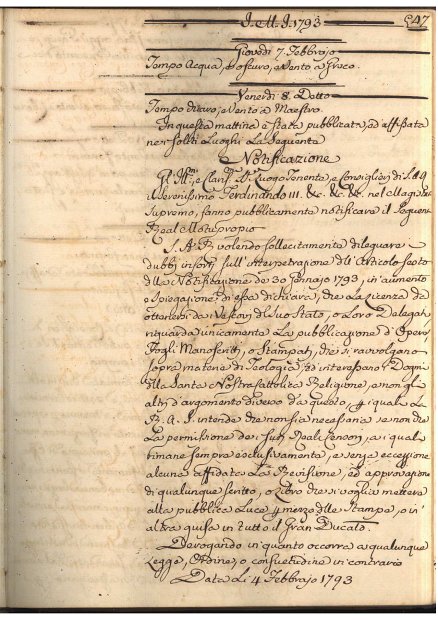 I. M. I. 1793
507
Giovedì 7. Febbrajo
Tempo Acqua, e oscuro, e Vento a Greco.
Venerdì 8. Detto
Tempo diverso, e Vento a Maestro.
In questa mattina è stata pubblicata, ed affissata
nei soliti Luoghi La Seguente
Notificazione
Gl' Ill.mi, e Clar.mi SS.ri Luogo Tenente, e Consiglieri di S. A. R.
il Serenissimo Ferdinando III. &c. &c. &c. nel Magistrato
Supremo, fanno pubblicamente notificare il Seguente
Real Motuproprio
S. A. R. volendo sollecitamente dileguare
dubbj insorti sull' interpetrazione dell' Articolo Sesto
della Notificazione de 30 Gennajo 1793, in aumento
e Spiegazione di essa dichiara, che La Licenza da
ottenersi da Vescovi del Suo Stato, o Loro Delegati,
riguarda unicamente La pubblicazione d' Opere,
Fogli Manoscritti, o Stampati, che si ravvolgano
sopra materie di Teologia, ed interessano i Dogmi
della Santa Nostra Cattolica Religione, e non gli
altri d' argomento diverso da questo, p. i quali La
R. A. S. intende che non sia necessaria se non che
La permissione dei suoi Reali Censori, a i quali
rimane sempre esclusivamente, e senza eccezione
alcuna affidata La Revisione, ed approvazione
di qualunque scritto, o Libro che si voglia mettere
alla pubblica Luce p. mezzo delle Stampe, o in
altra guisa in tutto il Gran Ducato.
Derogando in quanto occorra a qualunque
Legge, Ordine, o consuetudine in contrario
Data Li 4 Febbrajo 1793